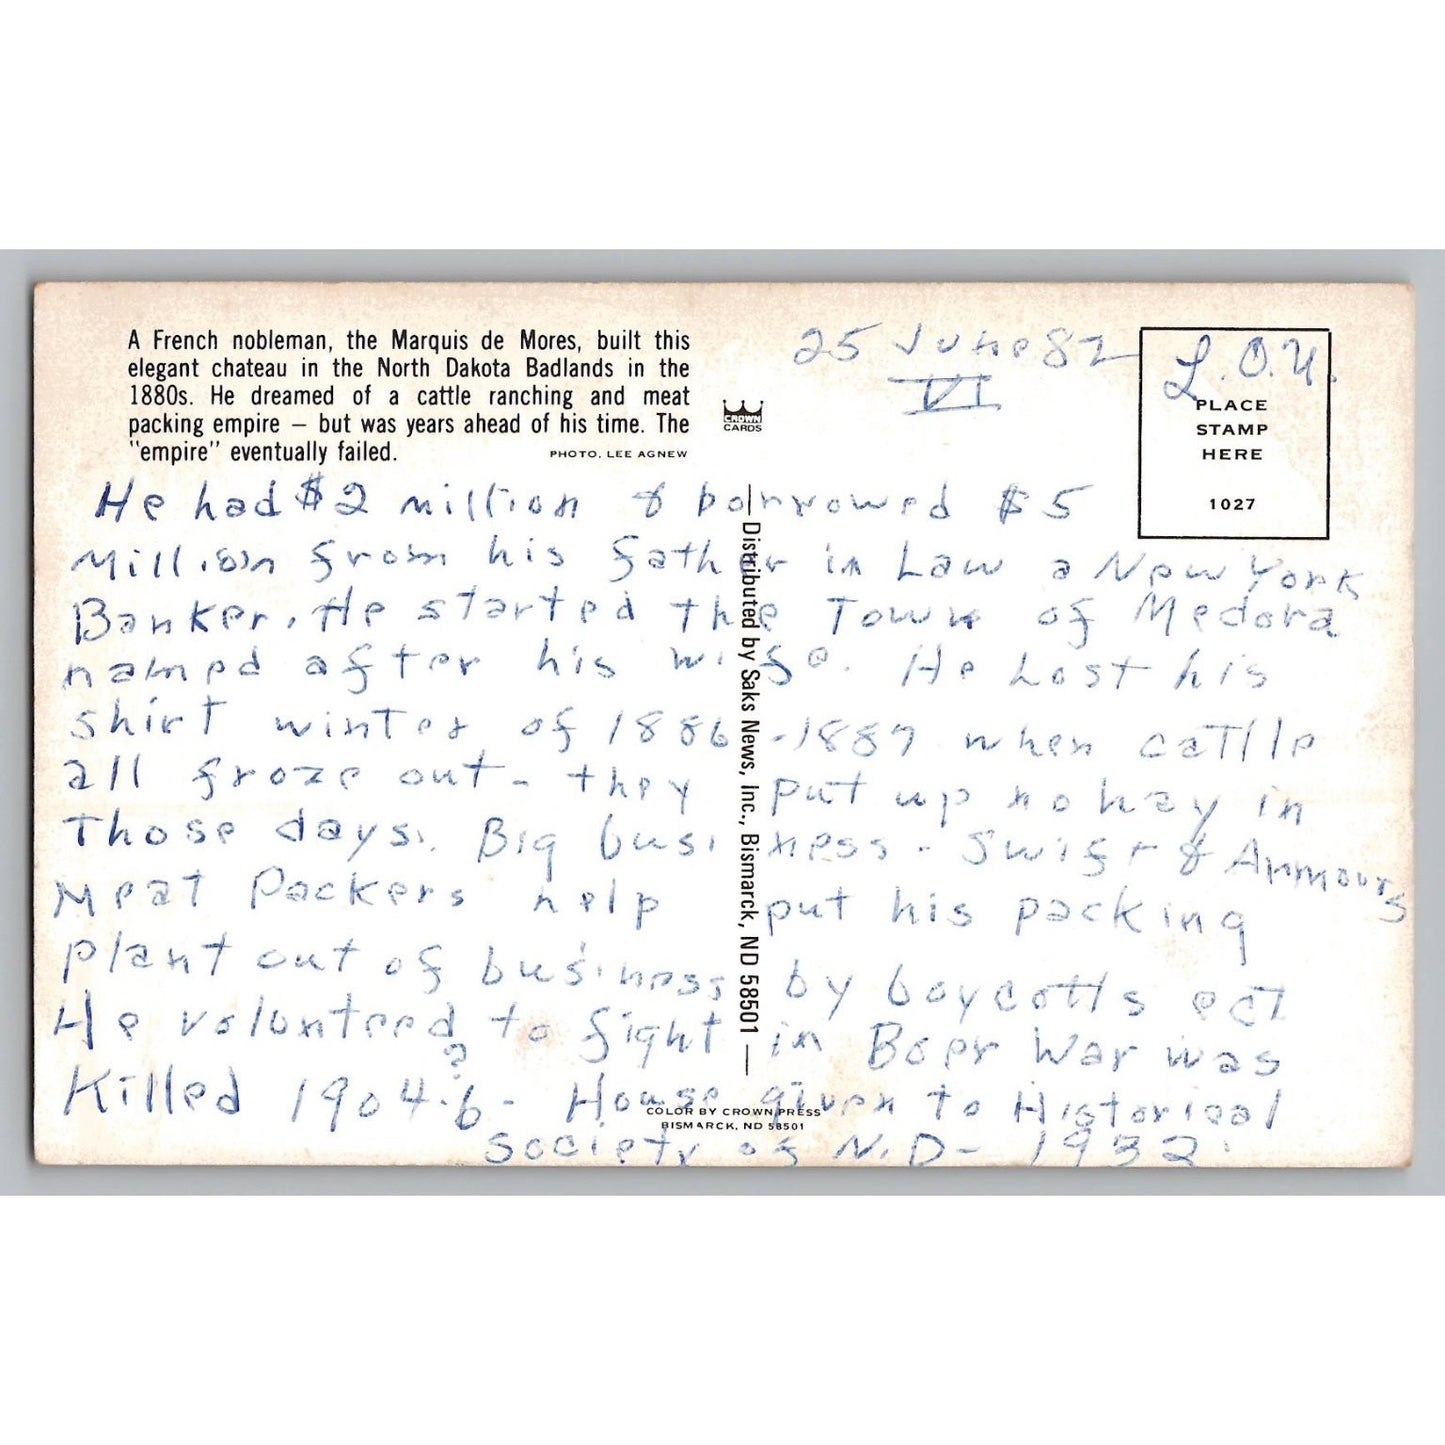 A French nobleman, the Marquis de Mores, built this
elegant chateau in the North Dakota Badlands in the
1880s. He dreamed of a cattle ranching and meat
packing empire — but was years ahead of his time. The
"empire" eventually failed.
PHOTO, LEE AGNEW
CROWN
CARDS
25 June 82
VI
L.O.U.
PLACE
STAMP
HERE
1027
He had $2 million & borrowed $5
Million from his father in Law a New York
Banker. He started the Town of Medora
named after his wife. He Lost his
shirt winter of 1886-1887 when cattle
all froze out - they put up no hay in
Those days. Big business - Swift & Armours
Meat Packers help put his packing
plant out of business by boycotts ect
He volunteered to fight in Boer War was
Killed 1904-6? - House given to Historical
Society of N.D - 1932.
Distributed by Saks News, Inc., Bismarck, ND 58501
COLOR BY CROWN PRESS
BISMARCK, ND 58501